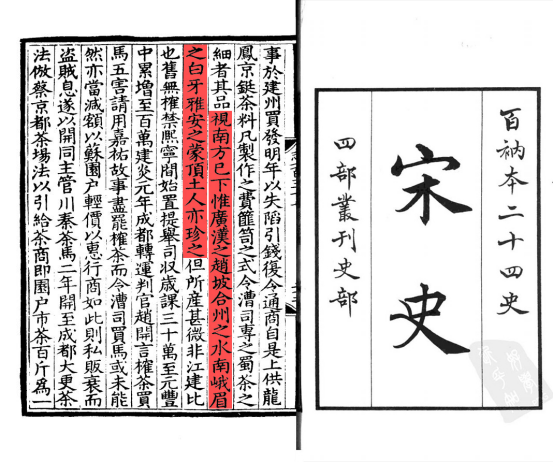 百衲本二十四史
宋史
四部叢刊史部
事於建州買發明年以失陷引錢復令通商自是上供龍
鳳京鋌茶料凡製作之費篚笥之式令漕司專之蜀茶之
細者其品視南方已下惟廣漢之趙坡合州之水南峨眉
之白牙雅安之蒙頂土人亦珍之但所産甚微非江建比
也舊無榷禁熙寧間始置提舉司収歲課三十萬至元豐
中累增至百萬建炎元年成都轉運判官趙開言榷茶買
馬五害請用嘉祐故事盡罷榷茶而令漕司買馬或未能
然亦當減額以蘇園户輕價以惠行商如此則私販衰而
盜賊息遂以開同主管川秦茶馬二年開至成都大更茶
法倣蔡京都茶場法以引給茶商即園户市茶百斤爲一